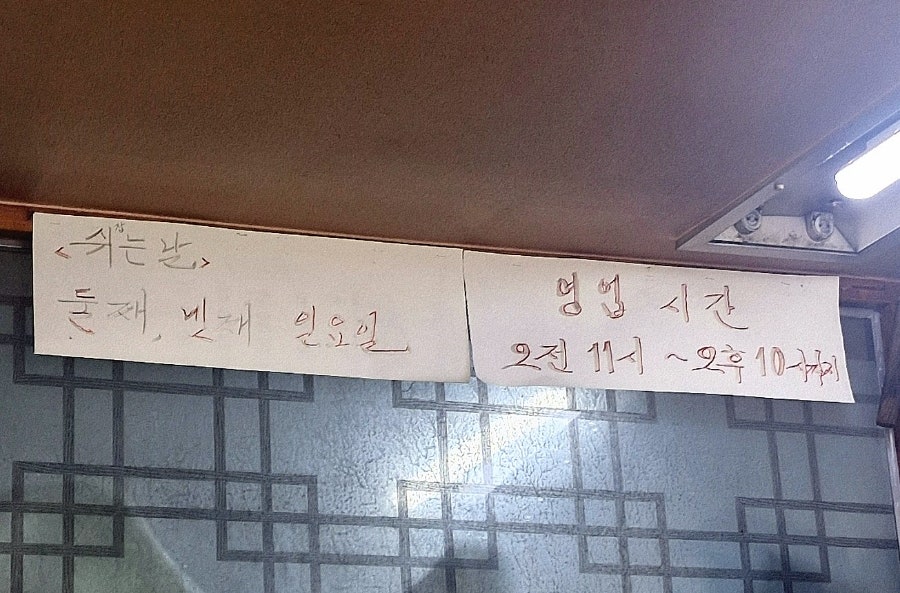 <쉬는날>
둘째, 넷째 일요일
영업 시간
오전 11시 ~오후 10시까지